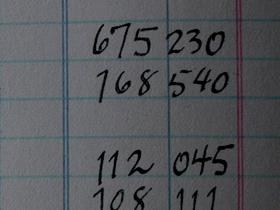 675 230
768 540
112 045
108 111